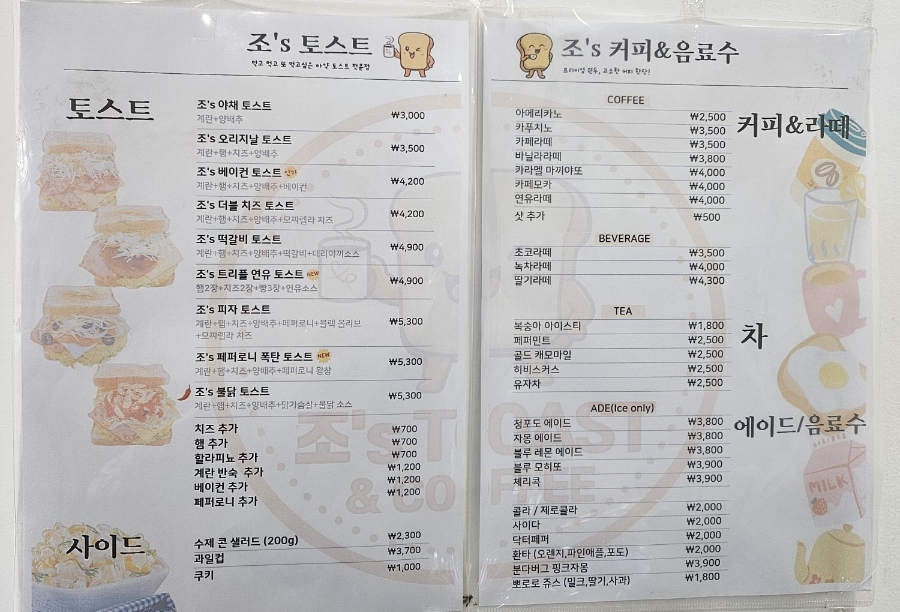 조's 토스트
먹고 먹고 또 먹고싶은 마약 토스트 전문점
토스트
조's 야채 토스트
계란+양배추
₩3,000
조's 오리지날 토스트
계란+햄+치즈+양배추
₩3,500
조's 베이컨 토스트 인기
계란+햄+치즈+양배추+베이컨
₩4,200
조's 더블 치즈 토스트
계란+햄+치즈+양배추+모짜렐라 치즈
₩4,200
조's 떡갈비 토스트
계란+햄+치즈+양배추+떡갈비+데리야끼소스
₩4,900
조's 트리플 연유 토스트 NEW
햄2장+치즈2장+빵3장+연유소스
₩4,900
조's 피자 토스트
계란+햄+치즈+양배추+페퍼로니+블랙 올리브
+모짜렐라 치즈
₩5,300
조's 페퍼로니 폭탄 토스트 NEW
계란+햄+치즈+양배추+페퍼로니 왕창
₩5,300
조's 불닭 토스트
계란+햄+치즈+양배추+닭가슴살+불닭 소스
₩5,300
치즈 추가 ₩700
햄 추가 ₩700
할라피뇨 추가 ₩700
계란 반숙 추가 ₩1,200
베이컨 추가 ₩1,200
페퍼로니 추가 ₩1,200
사이드
수제 콘 샐러드 (200g) ₩2,300
과일컵 ₩3,700
쿠키 ₩1,000
조's TOAST
& COFFEE
조's 커피&음료수
프리미엄 원두, 고소한 커피 한잔!
COFFEE
커피&라떼
아메리카노 ₩2,500
카푸치노 ₩3,500
카페라떼 ₩3,500
바닐라라떼 ₩3,800
카라멜 마끼야또 ₩4,000
카페모카 ₩4,000
연유라떼 ₩4,000
샷 추가 ₩500
BEVERAGE
초코라떼 ₩3,500
녹차라떼 ₩4,000
딸기라떼 ₩4,300
TEA
차
복숭아 아이스티 ₩1,800
페퍼민트 ₩2,500
골드 캐모마일 ₩2,500
히비스커스 ₩2,500
유자차 ₩2,500
ADE(Ice only)
에이드/음료수
청포도 에이드 ₩3,800
자몽 에이드 ₩3,800
블루 레몬 에이드 ₩3,800
블루 모히또 ₩3,900
체리콕 ₩3,900
콜라 / 제로콜라 ₩2,000
사이다 ₩2,000
닥터페퍼 ₩2,000
환타 (오렌지,파인애플,포도) ₩2,000
분다버그 핑크자몽 ₩3,900
뽀로로 쥬스 (밀크,딸기,사과) ₩1,800
MILK